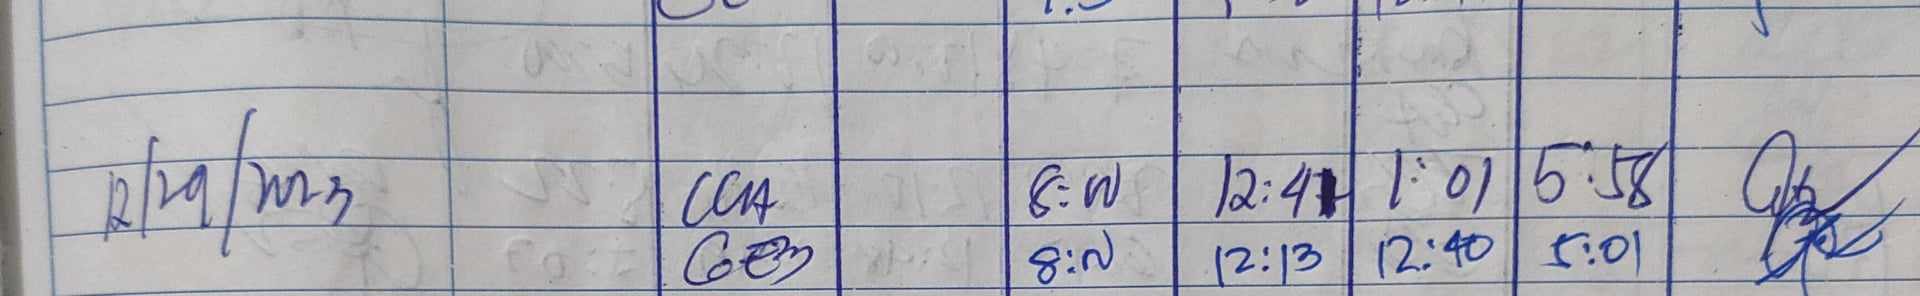 12/29/2023 CCIA 8:00 12:41 1:01 5:58
GEB 8:00 12:13 12:40 5:01